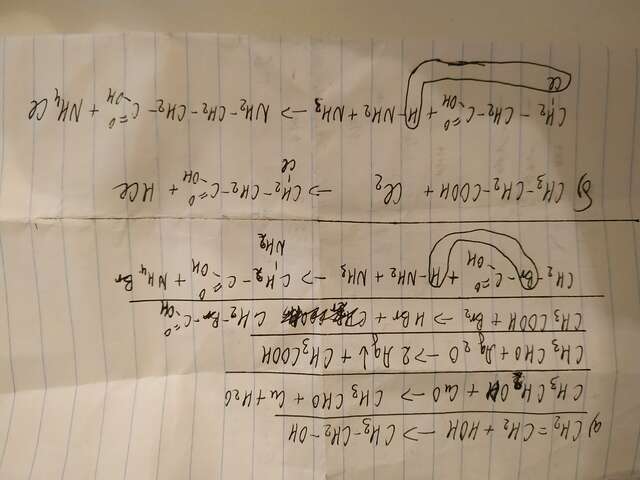 а) CH2=CH2 + HOH → CH3-CH2-OH
CH3CH2OH + CuO → CH3CHO + Cu + H2O
CH3CHO + Ag2O → 2Ag↓ + CH3COOH
CH3COOH + Br2 → HBr + CH2-Br-C=O
-OH
CH2 Br-C=O + H-NH2 + NH3 → CH2-C=O + NH4Br
-OH NH2 -OH
б) CH3-CH2-COOH + Cl2 → CH2-CH2-C=O + HCl
Cl -OH
CH2-CH2-C=O + H-NH2 + NH3 → NH2-CH2-CH2-C=O + NH4Cl
Cl -OH -OH